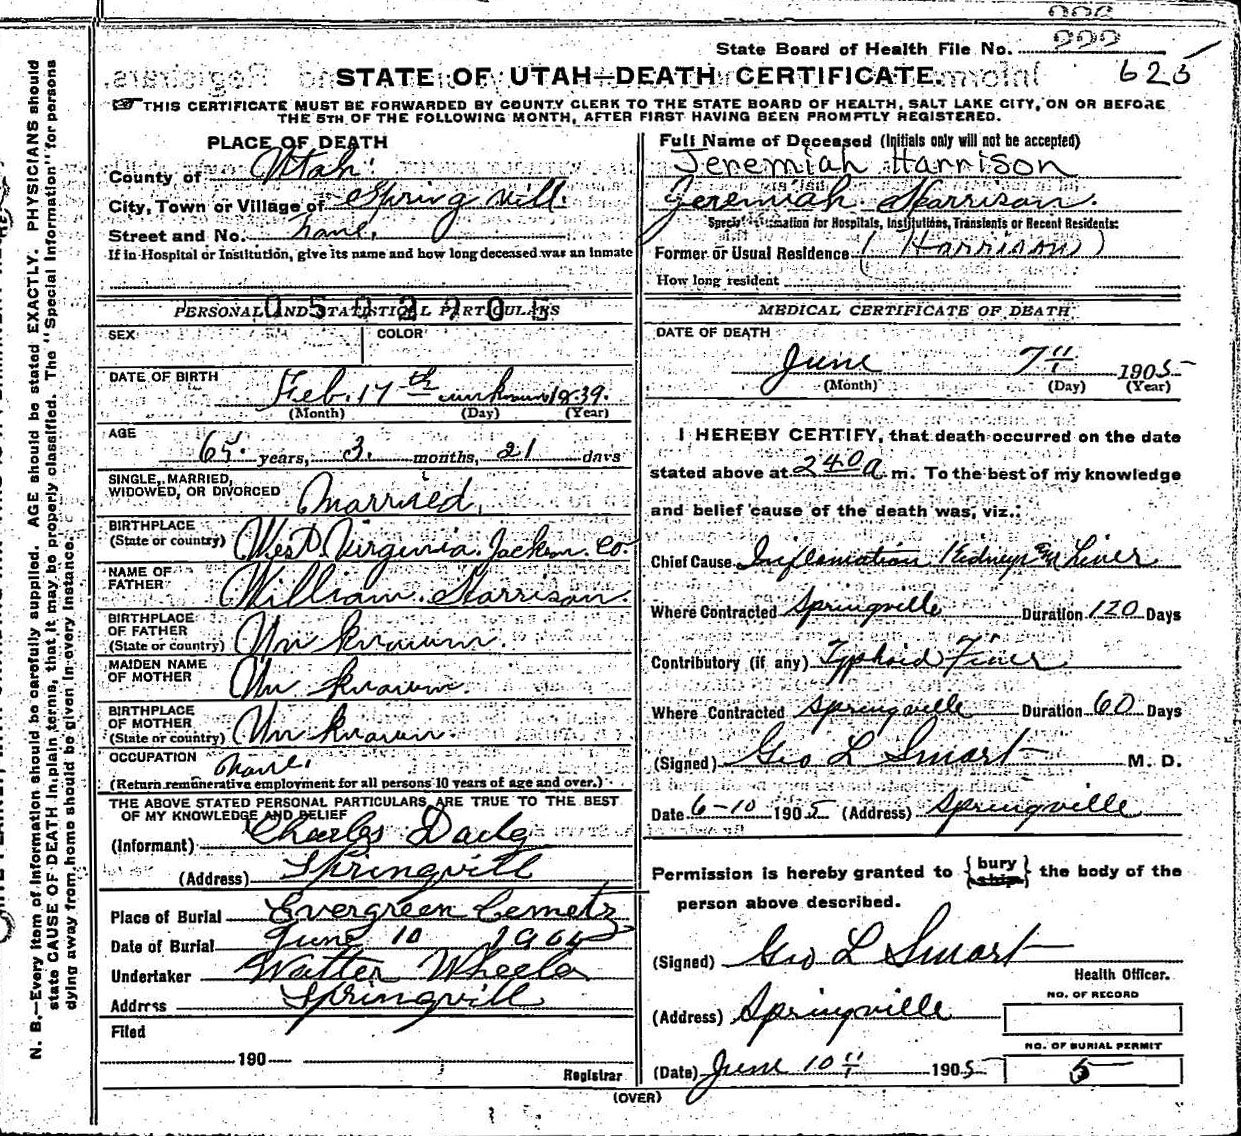 State Board of Health File No. 222
625
STATE OF UTAH—DEATH CERTIFICATE.
THIS CERTIFICATE MUST BE FORWARDED BY COUNTY CLERK TO THE STATE BOARD OF HEALTH, SALT LAKE CITY, ON OR BEFORE
THE 5TH OF THE FOLLOWING MONTH, AFTER FIRST HAVING BEEN PROMPTLY REGISTERED.
PLACE OF DEATH
County of Utah.
City, Town or Village of Spring vill.
Street and No. none.
If in Hospital or Institution, give its name and how long deceased was an inmate
PERSONAL AND STATISTICAL PARTICULARS
SEX
COLOR
DATE OF BIRTH
Feb. 17th 1839.
(Month) (Day) (Year)
AGE
65. years, 3. months, 21 days
SINGLE, MARRIED,
WIDOWED, OR DIVORCED Married.
BIRTHPLACE
(State or country) West Virginia. Jackson. Co.
NAME OF
FATHER William. Harrison
BIRTHPLACE
OF FATHER
(State or country) Un known.
MAIDEN NAME
OF MOTHER Un known.
BIRTHPLACE
OF MOTHER
(State or country) Un known.
OCCUPATION none.
(Return remunerative employment for all persons 10 years of age and over.)
THE ABOVE STATED PERSONAL PARTICULARS ARE TRUE TO THE BEST
OF MY KNOWLEDGE AND BELIEF
(Informant) Charles
(Address) Springvill
Place of Burial Evergreen
Date of Burial June 10 1905
Undertaker Wheeler
Address Springvill
Filed
190
Registrar
Full Name of Deceased (Initials only will not be accepted)
Jeremiah Harrison
Jeremiah Harrison.
Special Information for Hospitals, Institutions, Transients or Recent Residents:
Former or Usual Residence (Harrison)
How long resident
MEDICAL CERTIFICATE OF DEATH
DATE OF DEATH
June 7" 1905
(Month) (Day) (Year)
I HEREBY CERTIFY, that death occurred on the date
stated above at 240 a m. To the best of my knowledge
and belief cause of the death was, viz.:
Chief Cause Inflamation Kidneys Liver
Where Contracted Springville Duration 120 Days
Contributory (if any) Typhoid Fever
Where Contracted Springville Duration 60 Days
(Signed) Geo L Smart M. D.
Date 6-10 1905 (Address) Springville
Permission is hereby granted to {bury ship} the body of the
person above described.
(Signed) Geo L Smart
Health Officer.
(Address) Springville
NO. OF RECORD
NO. OF BURIAL PERMIT
5
(Date) June 10" 1905
(OVER)
N. B.—Every item of information should be carefully supplied. AGE should be stated EXACTLY. PHYSICIANS should
state CAUSE OF DEATH in plain terms, that it may be properly classified. The "Special Information" for persons
dying away from home should be given in every instance.